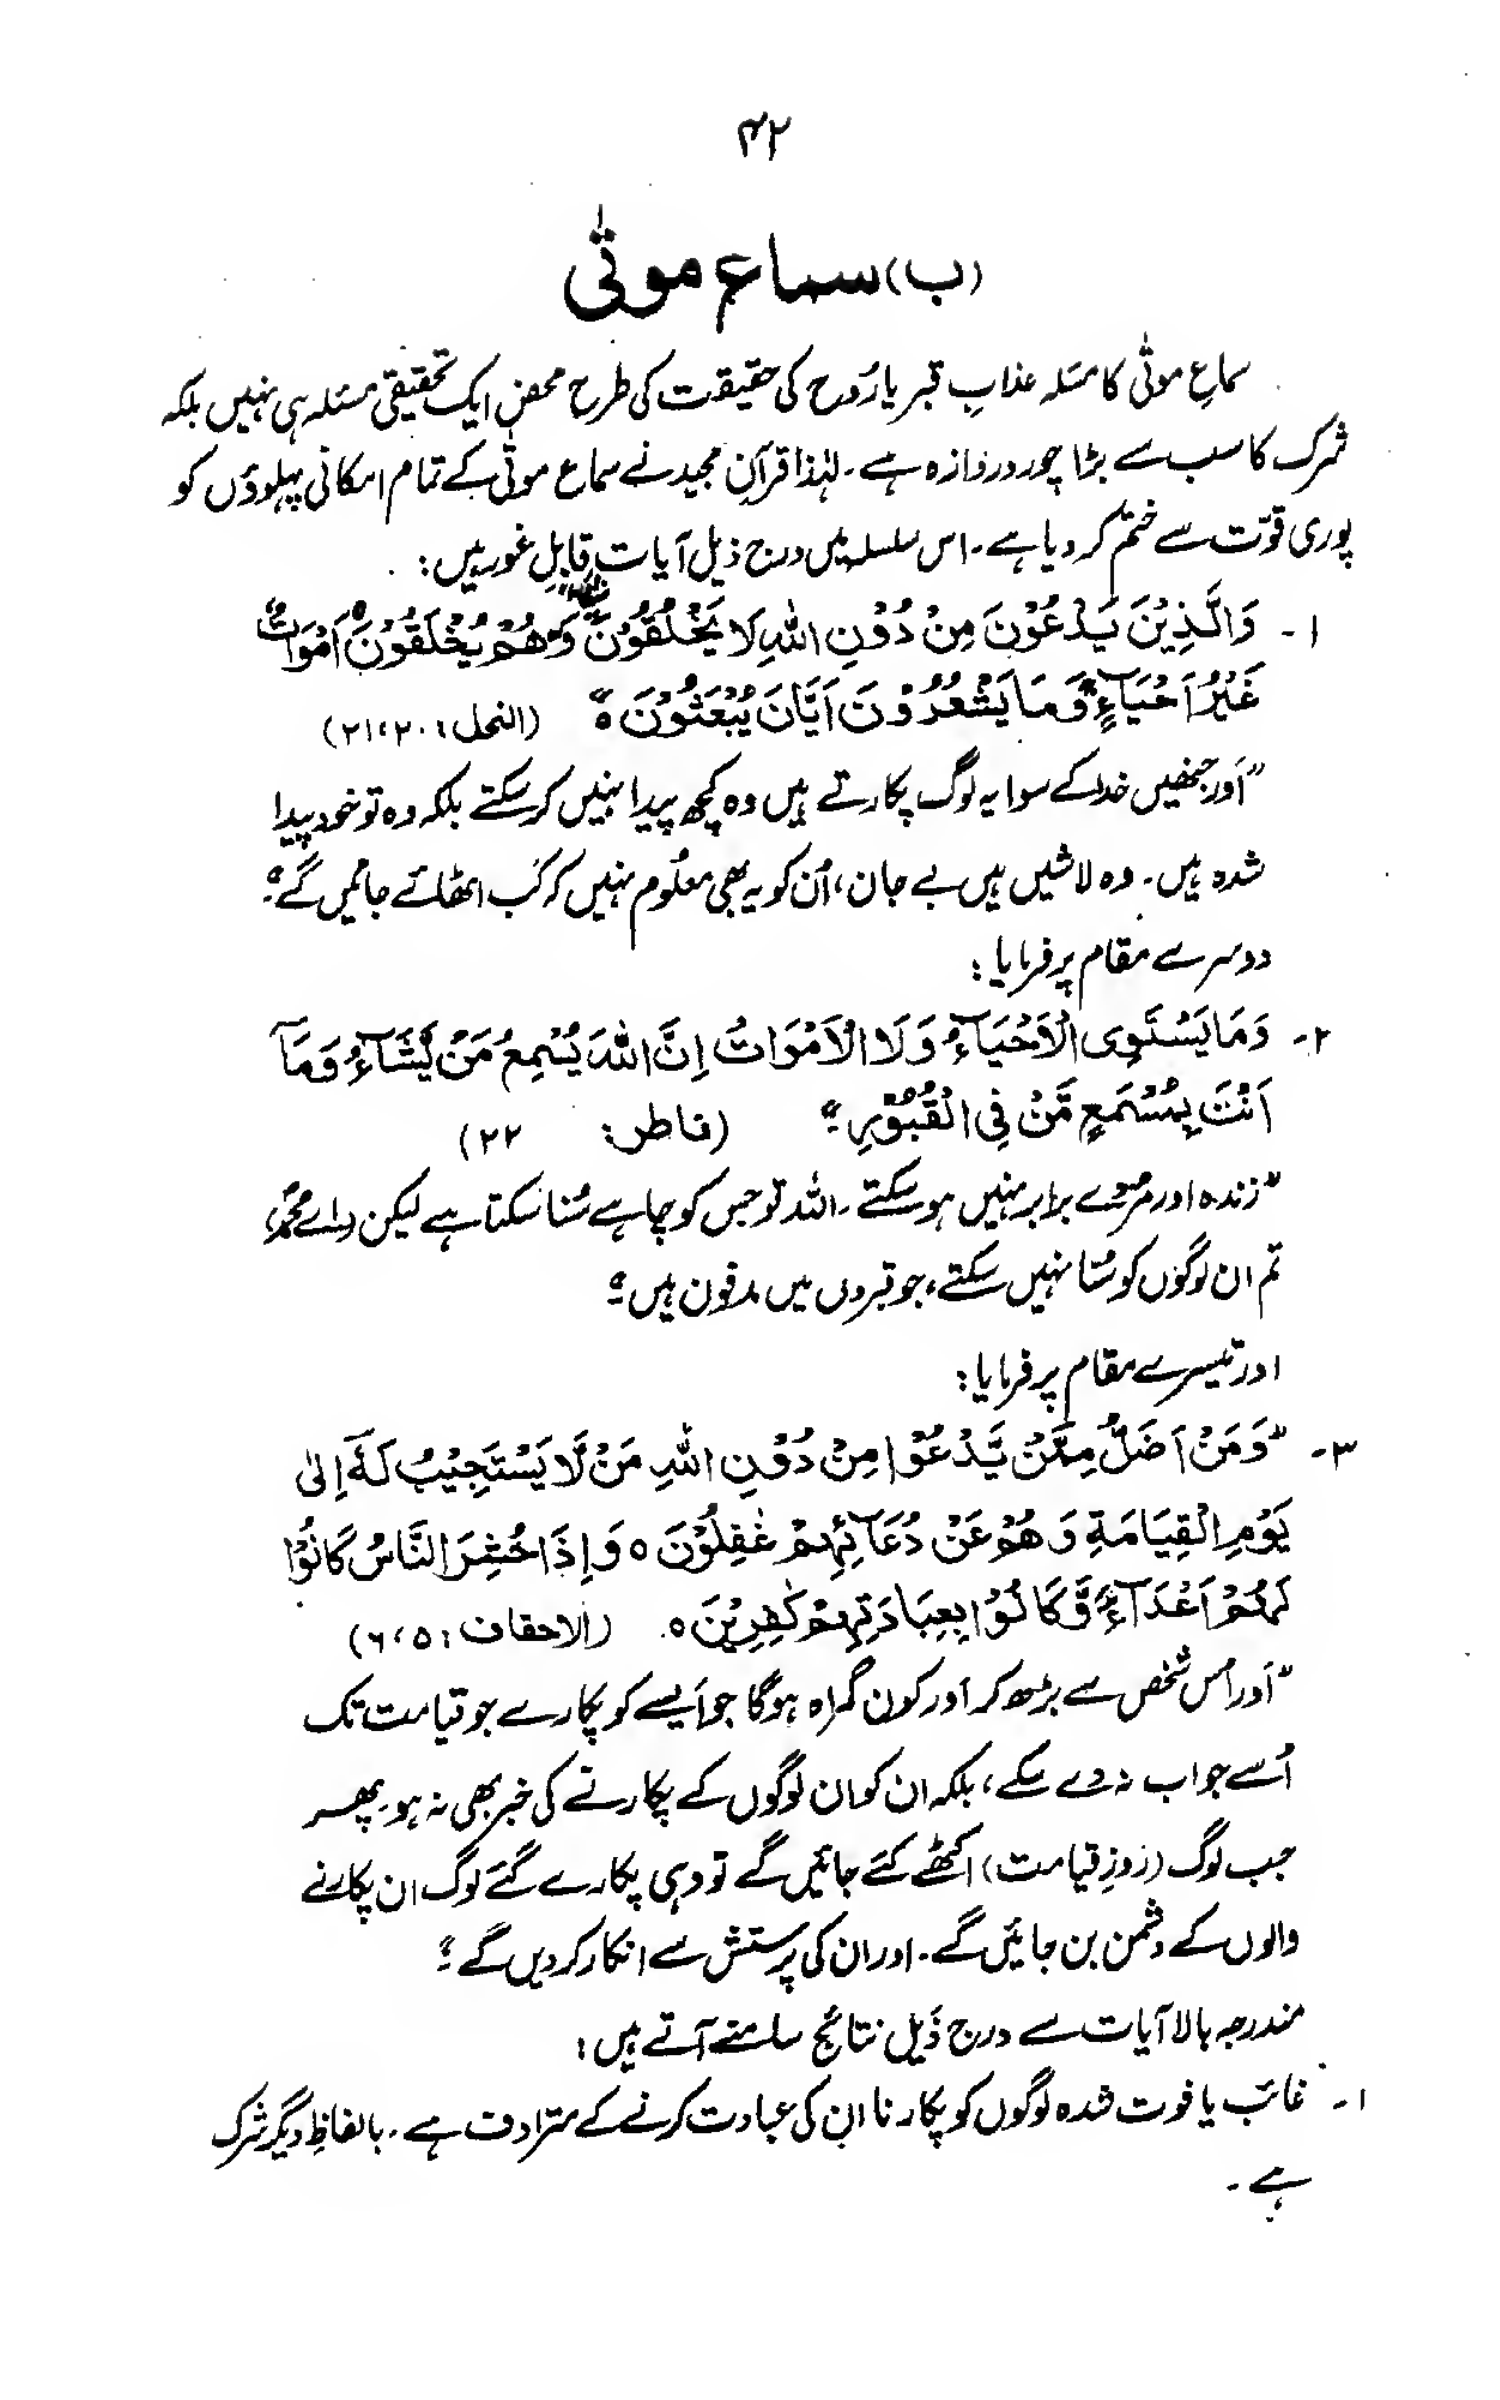 ۴۲
(ب) سماع موتٰی
سماعِ موتٰی کا مسَلہ عذابِ قبر یا رُوح کی حقیقت کی طرح محض ایک تحقیقی مسئلہ ہی نہیں بلکہ
شرک کا سب سے بڑا چور دروازہ ہے۔ لہٰذا قرآنِ مجید نے سماع موتٰی کے تمام امکانی پہلوؤں کو
پوری قوّت سے ختم کر دیا ہے۔ اس سلسلہ میں درج ذیل آیات قابلِ غور ہیں:
۱۔ وَالَّذِيْنَ يَدْعُوْنَ مِنْ دُوْنِ اللّٰهِ لَا يَخْلُقُوْنَ وَهُمْ يُخْلَقُوْنَ ہ اَمْوَاتٌ
غَيْرُ اَحْيَآءٍ وَّمَا يَشْعُرُوْنَ اَيَّانَ يُبْعَثُوْنَ ہ" (النحل: ۲۰، ۲۱)
"اَور جنھیں خدا کے سوا یہ لوگ پکارتے ہیں وہ کچھ پیدا نہیں کر سکتے بلکہ وہ تو خود پیدا
شدہ ہیں۔ وہ لاشیں ہیں بے جان، اُن کو یہ بھی معلُوم نہیں کہ کَب اٹھائے جائیں گے۔"
دوسرے مقام پر فرمایا:
۲۔ وَمَا يَسْتَوِى الْاَحْيَآءُ وَلَا الْاَمْوَاتُ اِنَّ اللّٰهَ يُسْمِعُ مَنْ يَّشَآءُ وَمَآ
اَنْتَ بِمُسْمِعٍ مَّنْ فِى الْقُبُوْرِ۔" (فاطر: ۲۲)
"زندہ اور مردے برابر نہیں ہو سکتے۔ اللہ تو جس کو چاہے سُنا سکتا ہے لیکن (اے محمدؐ)
تم ان لوگوں کو سُنا نہیں سکتے، جو قبروں میں مدفون ہیں۔"
اور تیسرے مقام پر فرمایا:
۳۔ "وَمَنْ اَضَلُّ مِمَّنْ يَّدْعُوْا مِنْ دُوْنِ اللّٰهِ مَنْ لَّا يَسْتَجِيْبُ لَهٗٓ اِلٰى
يَوْمِ الْقِيَامَةِ وَهُمْ عَنْ دُعَآئِهِمْ غٰفِلُوْنَ ہ وَاِذَا حُشِرَ النَّاسُ كَانُوْا
لَهُمْ اَعْدَآءً وَّكَانُوْا بِعِبَادَتِهِمْ كٰفِرِيْنَ ہ (الاحقاف: ۵، ۶)
"اَور اُس شخص سے بڑھ کر اَور کون گمراہ ہوگا جو اَیسے کو پکارے جو قیامت تک
اُسے جواب نہ دے سکے، بلکہ ان کو ان لوگوں کے پکارنے کی خبر بھی نہ ہو۔ پھر
جب لوگ (روزِ قیامت) اکٹھے کئے جائیں گے تو وہی پکارے گئے لوگ ان پکارنے
والوں کے دشمن بن جائیں گے۔ اور ان کی پرستش سے انکار کر دیں گے۔"
مندرجہ بالا آیات سے درج ذَیل نتائج سامنے آتے ہیں:
۱۔ غائب یا فوت شدہ لوگوں کو پکارنا ان کی عبادت کرنے کے مترادف ہے۔ بالفاظِ دیگر شرک
ہے۔